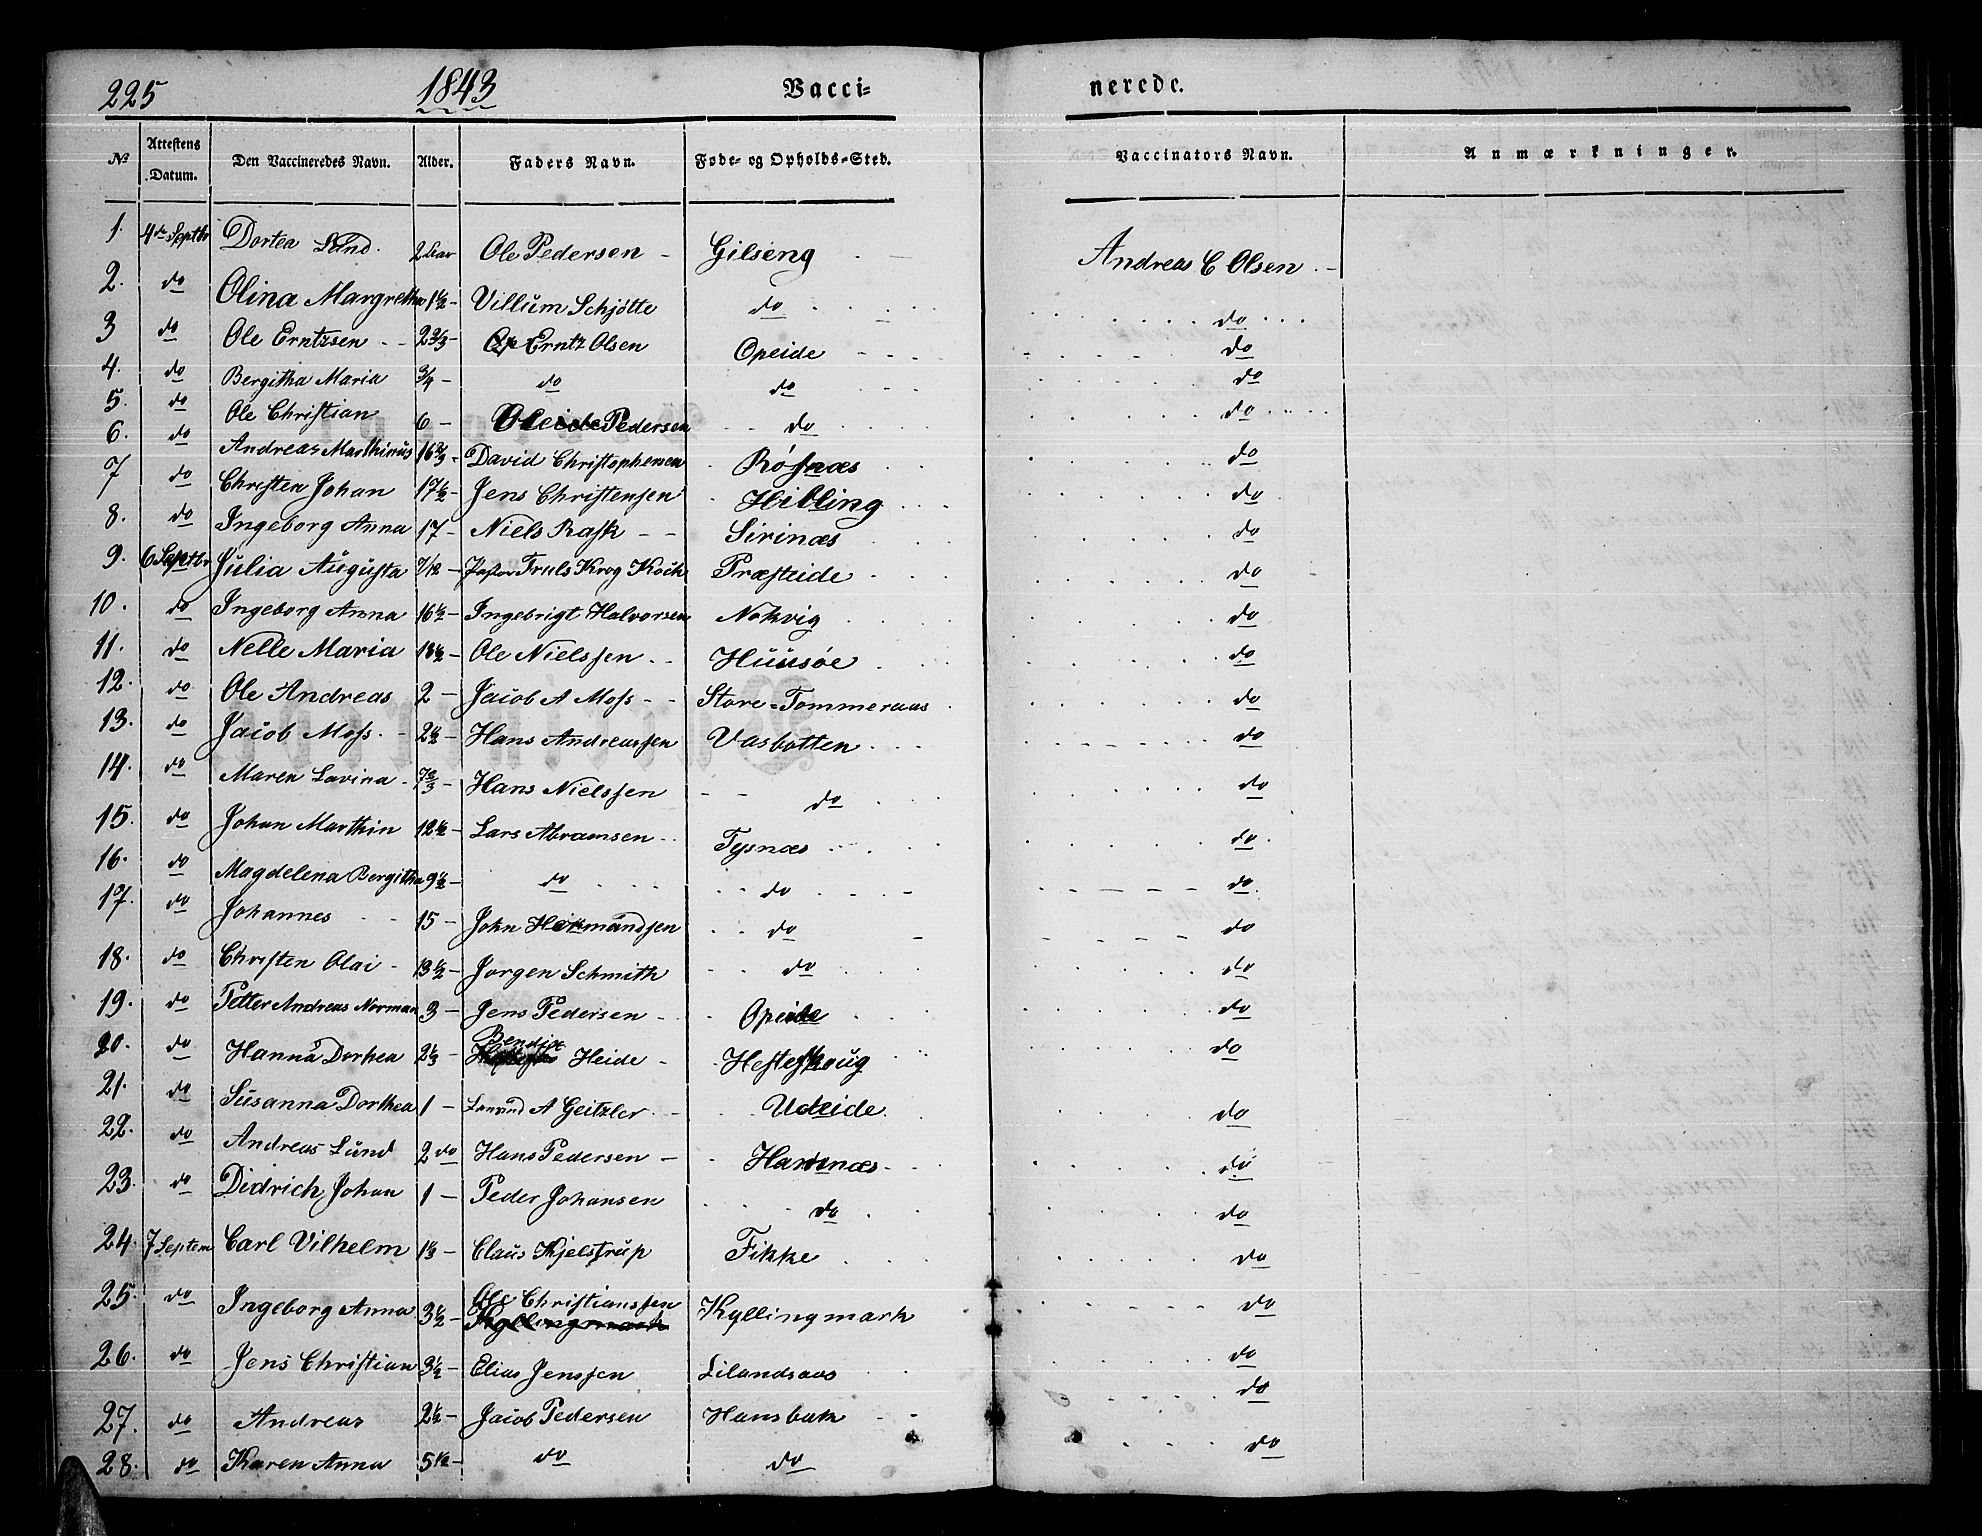 225 1843 Vacci- nerede.
No Attestens Datum. Den Vaccineredes Navn. Alder. Faders Navn. Føde- og Opholds-Sted. Vaccinators Navn. Anmærkninger.
1. 4de Septbr Dortea Lund. 2 Aar Ole Pedersen Gilseng Andreas C Olsen
2. do Olina Margretha 1½ Villum Schjötte do do
3 do Ole Erntzsen 2⅔ Erntz Olsen Opeide do
4. do Bergitha Maria ¾ do do do
5. do Ole Christian 6 Ole Pedersen do do
6. do Andreas Marthinus 16⅔ David Christophersen Rösnæs do
7 do Christen Johan 17½ Jens Christensen Hibling do
8. do Ingeborg Anna 17 Niels Rask Sirinæs do
9. 6 Septbr Julia Augusta 7/12 Pastor Truls Krog Koch Præsteide do
10. do Ingeborg Anna 16½ Ingebrigt Halvorsen Nokvig do
11. do Nelle Maria 18½ Ole Nielssen Huusøe do
12. do Ole Andreas 2 Jacob A Moss Store-Tommeraas do
13. do Jacob Moss 2½ Hans Andreassen Vasbotten do
14. do Maren Lovina 7⅔ Hans Nielssen do do
15. do Johan Marthin 12½ Lars Abramsen Tysnæs do
16. do Magdelena Bergitha 9½ do do do
17. do Johannes 15 John Hermandsen do do
18. do Christen Olai 13½ Jorgen Schmith do do
19. do Petter Andreas Norman 3 Jens Pedersen Opeide do
20. do Hanna Dorhea 2⅓ Bendix Heide Hesteskoug do
21. do Susanna Dorthea 1 A Geitzler Uteide do
22. do Andreas Lund 2 do Hans Pedersen Hamnæs do
23. do Didrich Johan 1 Peder Johansen do do
24. 7 Septem Carl Vilhelm 1⅓ Claus Kjelstrup Fikke do
25. do Ingeborg Anna 3½ Ole Christianssen Kyllingmark Kyllingmark do
26. do Jens Christian 3½ Elias Jenssen Lilandsaas do
27. do Andreas 2½ Jacob Pedersen Hansbak do
28. do Karen Anna 5½ do do do